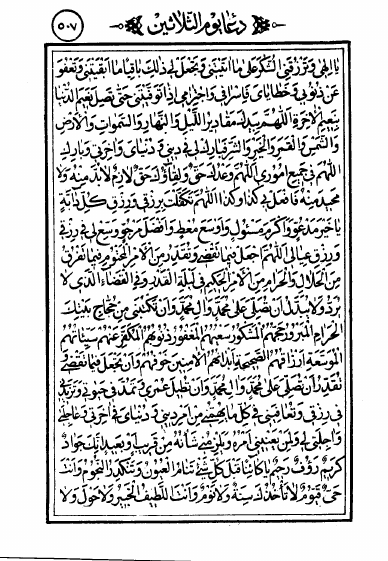 ٥٠٧
دعا يوم الثلاثين
يا الهى وترزقنى الشكر على ما انقيتنى وتجعل لى ذلك باقيا ما ابقيتنى وتعفو
عن ذنوبى وخطاياى واسرافى واجترامى اذا توفيتنى حتى تصل نعيم الدنيا
بنعيم الآخرة اللهم بيدك مقادير الليل والنهار والسموات والارض
والشمس والقمر والخير والشر فبارك لى فى دينى ودنياى وآخرتى وبارك
اللهم فى جميع امورى اللهم وعدك حق ولقاؤك حق لازم لا بد منه ولا
محيد منه فافعل بى كذا وكذا اللهم تكفلت برزقى ورزق كل دابة
يا خير مدعو واكرم مسئول واوسع معط وافضل مرجو وسع لى فى رزقى
ورزق عيالى اللهم اجعل فيما تقضى وتقدر من الامر المحتوم فيما تفرق
من الحلال والحرام من الامر الحكيم فى ليلة القدر وفى القضاء الذى لا
يرد ولا يبدل ان تصلى على محمد وال محمد وان تكتبنى من حجاج بيتك
الحرام المبرور حجهم المشكور سعيهم المغفور ذنوبهم المكفر عنهم سيئاتهم
الموسعة ارزاقهم الصحيحة ابدانهم الآمنين خوفهم وان تجعل فيما تقضى و
تقدر ان تصلى على محمد وال محمد وان تطيل عمرى وتمد فى حيوتى وتزيد
فى رزقى وتعافينى فى كل ما يهمنى من امر دينى ودنياى وآخرتى وعاجلتى
وآجلتى لى ولمن يعنينى امره ويلزمنى شأنه من قريب او بعيد انك جواد
كريم رؤف رحيم يا كائنا قبل كل شىء تنام العيون وتنكدر النجوم وانت
حى قيوم لا تأخذك سنة ولا نوم وانت اللطيف الخبير ولا حول ولا